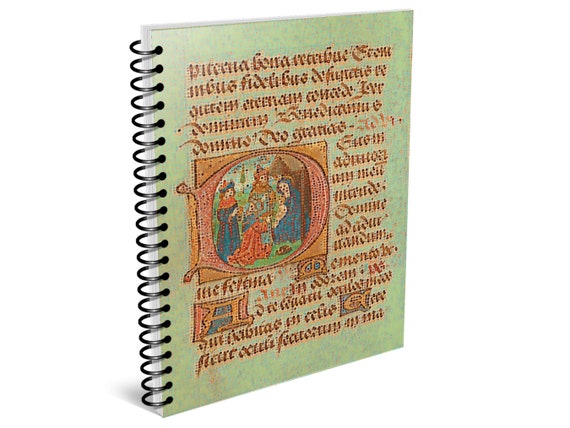 piterna bona retribue Et om
nibus fidelibus defunctis re
quiem eternam concede Per
dominum Benedicamus
domino Deo gracias
Deus in
adiutori
um meu
intende
Domine
ad adiu
uandum
me festina Memento
Ant in odorem ps
Ad te leuaui oculos meos
qui habitas in celis Ecce
sicut oculi seruorum in ma